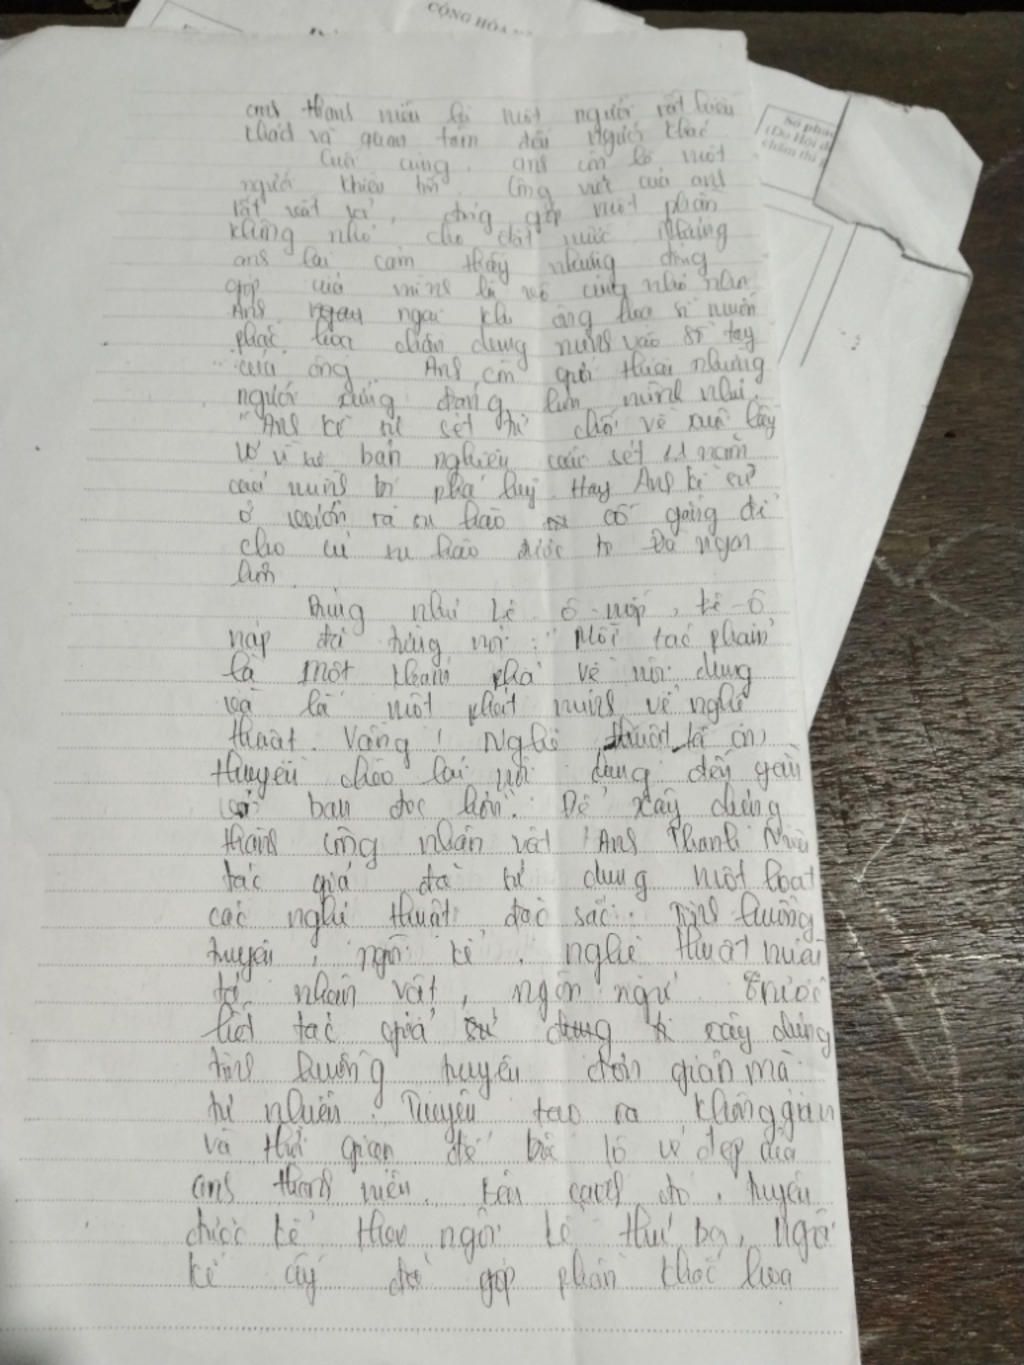 CỘNG HÒA
Số phá
(Do Hội đ
chấm thi
anh thanh niên là một người rất hiếu
khách và quan tâm đến người khác
Cuối cùng, anh còn là một
người khiêm tốn. Công việc của anh
rất vất vả, đóng góp một phần
không nhỏ cho đất nước. Nhưng
anh lại cảm thấy những đóng
góp của mình là vô cùng nhỏ nhoi
Anh ngại khi ông họa sĩ muốn
phác họa chân dung mình vào sổ tay
của ông. Anh còn giới thiệu những
người xứng đáng hơn mình như
"Anh kĩ sư sét
bản nghiên cứu sét 11 năm
Hay Anh kĩ sư
ở vườn rau su hào cố gắng để
cho củ su hào được to Đà ngon
hơn.
Đúng như Lê ô-nốp, Lê-ô
nốp đã từng nói: "Mỗi tác phẩm
là một khám phá về nội dung
và là một phát minh về nghệ
thuật. Vâng! Nghệ thuật là con
thuyền chèo lái nội dung đến gần
với bạn đọc hơn". Để xây dựng
thành công nhân vật "Anh Thanh Niên
tác giả đã sử dụng một loạt
các nghệ thuật đặc sắc: Tình huống
truyện, ngôi kể, nghệ thuật miêu
tả nhân vật, ngôn ngữ. Trước
hết tác giả xây dựng
tình huống truyện đơn giản mà
tự nhiên. Truyện tạo ra không gian
và thời gian để bộc lộ vẻ đẹp của
anh thanh niên. Bên cạnh đó, truyện
được kể theo ngôi kể thứ ba, ngôi
kể ấy đã góp phần khắc họa